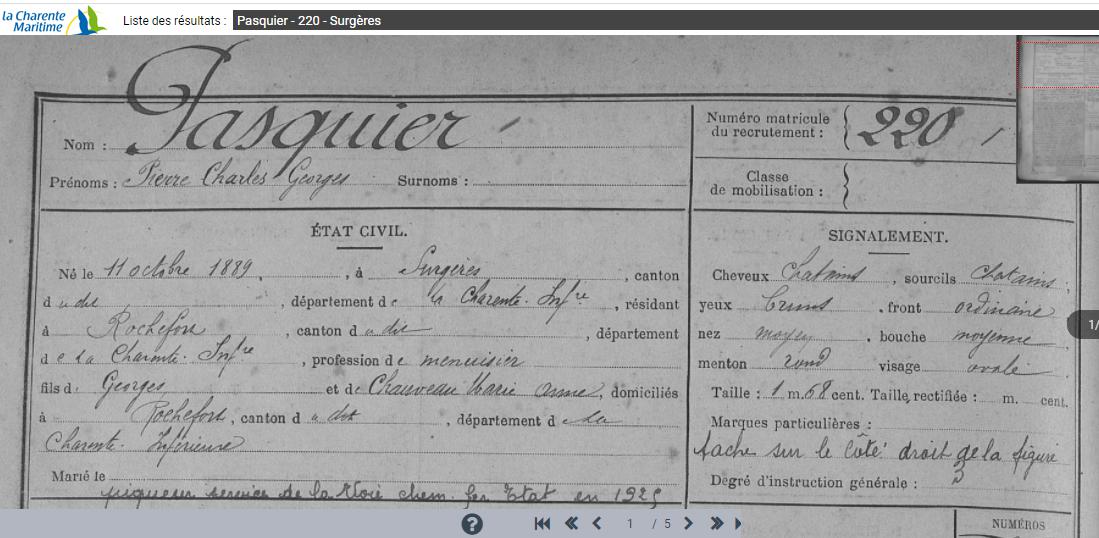 la Charente
Maritime
Liste des résultats : Pasquier - 220 - Surgères
Nom : Pasquier
Prénoms : Pierre Charles Georges Surnoms :
Numéro matricule
du recrutement : 220
Classe
de mobilisation :
ÉTAT CIVIL.
Né le 11 octobre 1889, à Surgères, canton
dudit, département de la Charente-Infre, résidant
à Rochefort, canton dudit, département
de la Charente-Infre, profession de menuisier
fils de Georges et de Chauveau Marie Anne, domiciliés
à Rochefort, canton dudit, département de la
Charente-Inférieure
Marié le
piqueur service de la Voie chem. fer Etat en 1925
SIGNALEMENT.
Cheveux Chatains, sourcils Chatains,
yeux bruns, front ordinaire
nez moyen, bouche moyenne
menton rond visage ovale
Taille : 1 m. 68 cent. Taille rectifiée : m. cent.
Marques particulières :
tache sur le côté droit de la figure
Degré d'instruction générale : 3
NUMÉROS
1 / 5
1/